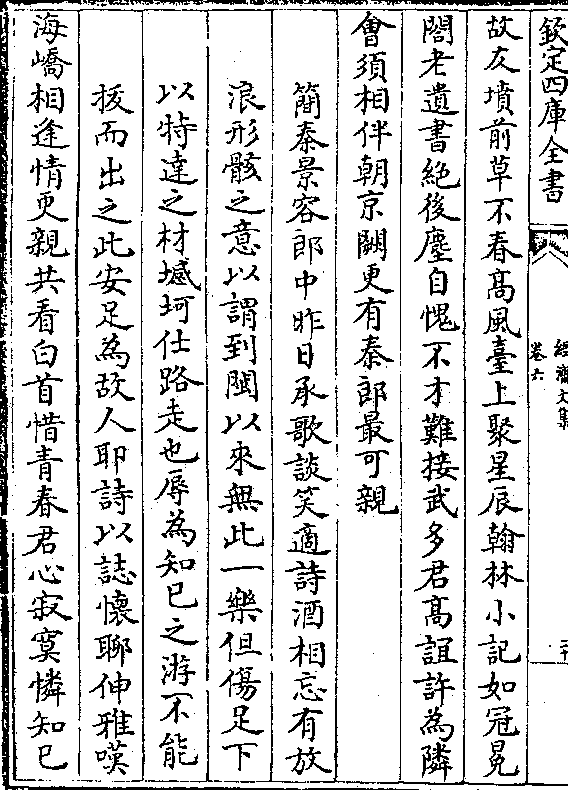 欽定四庫全書
經濟文集
卷六
故友墳前草不春髙風臺上聚星辰翰林小記如冠冕
閣老遺書絶後塵自愧不才難接武多君髙誼許為隣
㑹須相伴朝京闕更有秦郎最可親
簡秦景容郎中昨日承歌談笑適詩酒相忘有放
浪形骸之意以謂到閩以來無此一樂但傷足下
以特達之材堿坷仕路走也辱為知已之游不能
援而出之此安足為故人耶詩以誌懷聊伸雅嘆
海嶠相逢情更親共看白首惜青春君心寂寞憐知已